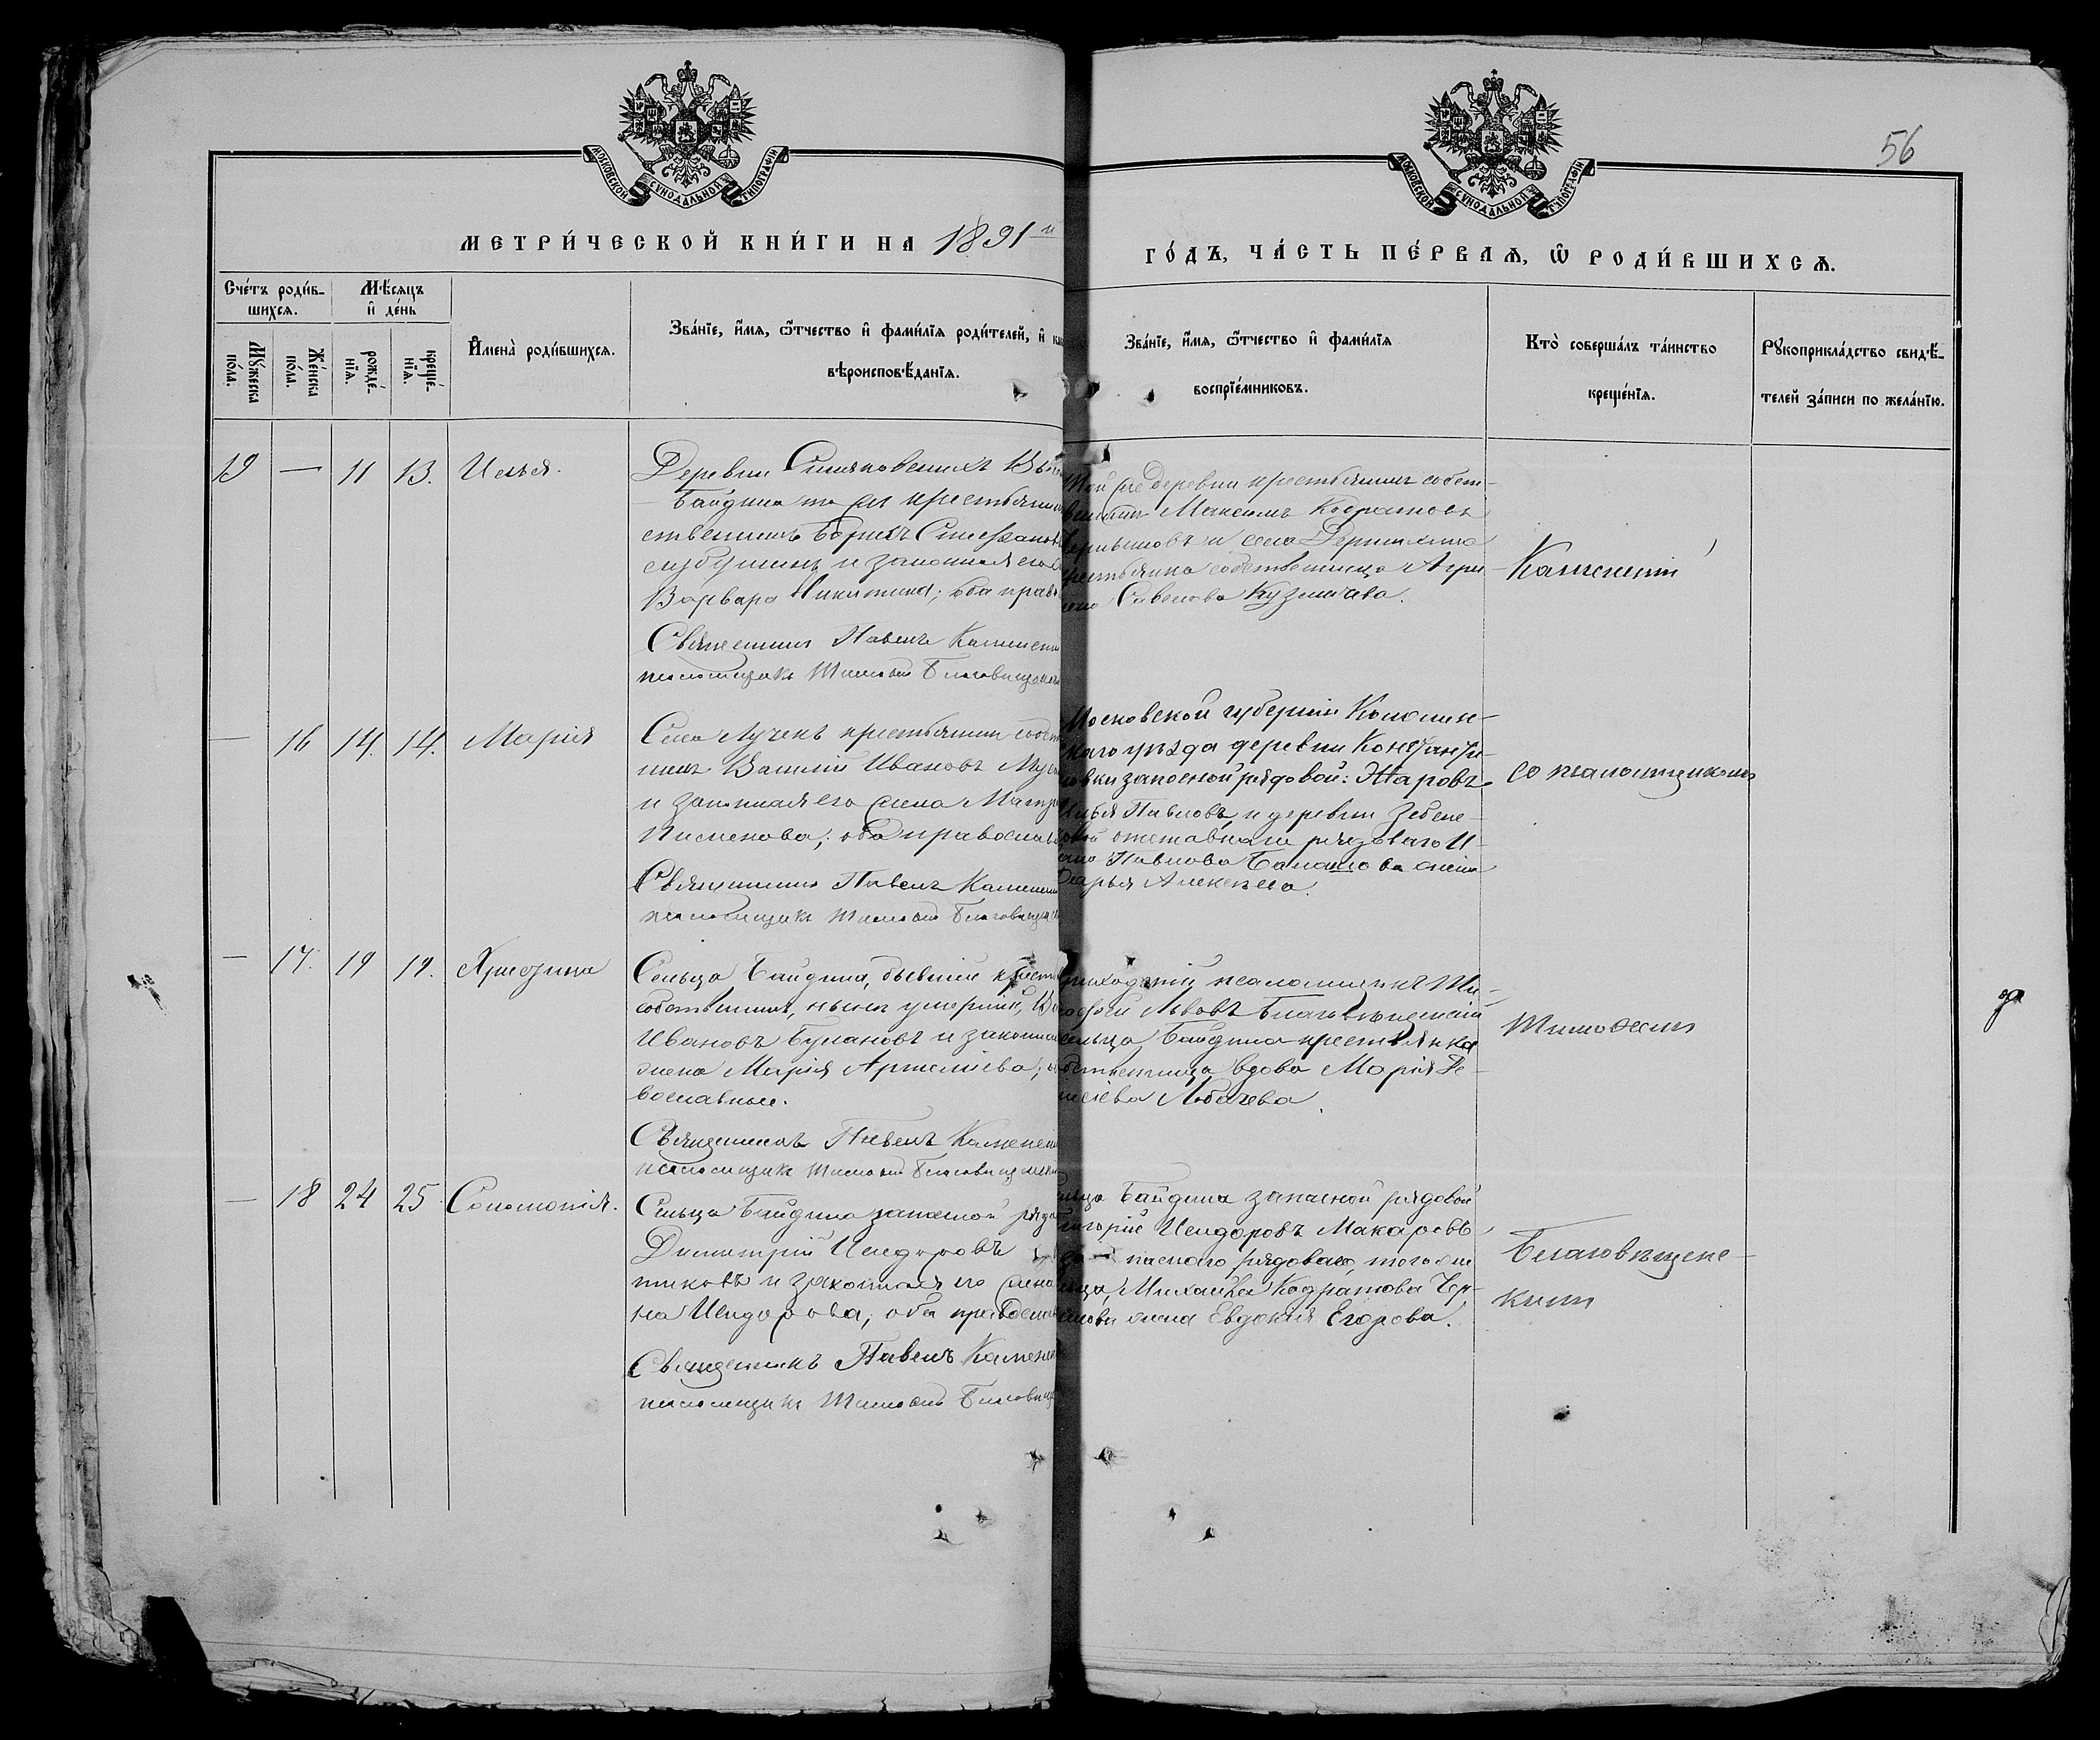 56
МОСКОВСКОЙ СУНОДАЛЬНОЙ ТИПОГРАФІИ
МОСКОВСКОЙ СУНОДАЛЬНОЙ ТИПОГРАФІИ
МЕТРИ́ЧЕСКОЙ КНИ́ГИ НА 1891 й
ГО́ДЪ, ЧА́СТЬ ПЕ́РВАѦ, Ѡ҆ РОДИ́ВШИХСѦ.
Сче́тъ роди́в-
шихсѧ.
Мꙋ́жеска
по́ла.
Же́нска
по́ла.
Мѣ́сѧцъ
и҆ де́нь
рожде́-
нїѧ.
креще́-
нїѧ.
И҆мена̀ роди́вшихсѧ.
Зва́нїе, и҆́мѧ, ѻ҆́тчество и҆ фами́лїѧ роди́телей, и҆ как
вѣроисповѣ́данїѧ.
Зва́нїе, и҆́мѧ, ѻ҆́тчество и҆ фами́лїѧ
воспрїе́мниковъ.
Кто̀ соверша́лъ та́инство
креще́нїѧ.
Рꙋкоприкла́дство свидѣ́-
телей за́писи по жела́нїю.
19 — 11 13. Илья.
Деревни
Байдина то ж крестьянин
ственникъ Борисъ Стефанов
и законная его
Варвара Никитина; оба право
Священникъ Павелъ Каменск
псаломщикъ Тимоѳей Благовѣщенск
Той же деревни крестьянинъ собст-
венникъ Максимъ Кодратовъ
и села
крестьянка собственница Агри-
Савелова Кузмичева.
Каменскій
— 16 14. 14. Марія
Села Лучекъ крестьянин собст
никъ Василій Ивановъ
и законная его жена Матр
Пименова; оба православ
Священникъ Павелъ Каменск
псаломщикъ Тимоѳей Благовѣщен
Московской губерніи Коломен-
скаго уѣзда деревни Константи-
новки запасной рядовой: Жаровъ
Илья Павловъ и деревни
отставнаго рядоваго И-
Павлова жена
Дарья Алексѣева.
со псаломщикомъ
— 17. 19 19. Христина
Сельца Байдина, бывший крест
собственник, нынѣ умершій, Ва
Ивановъ Булановъ и законная
жена Марія Артемьева; о
вославные.
Священникъ Павелъ Каменск
псаломщикъ Тимоѳей Благовѣщенск
приходскій псаломщикъ Ти-
моѳей Львовъ Благовѣщенскій
сельца Байдина крестьянка
собственница вдова Марія
Лобачева.
Тимоѳеемъ
— 18 24 25. Соломонія.
Сельца Байдина запасной рядо
Димитрій Исидоровъ
никовъ и законная его жена
на Исидорова; оба православ
Священникъ Павелъ Каменск
псаломщикъ Тимоѳей Благовѣщ
сельца Байдина запасной рядовой
Григорій Исидоровъ Макаровъ
за— паснаго рядоваго, того же
сельца, Михаила Кодратова Чер-
жена Евдокія Егорова.
Благовѣщенс-
кимъ